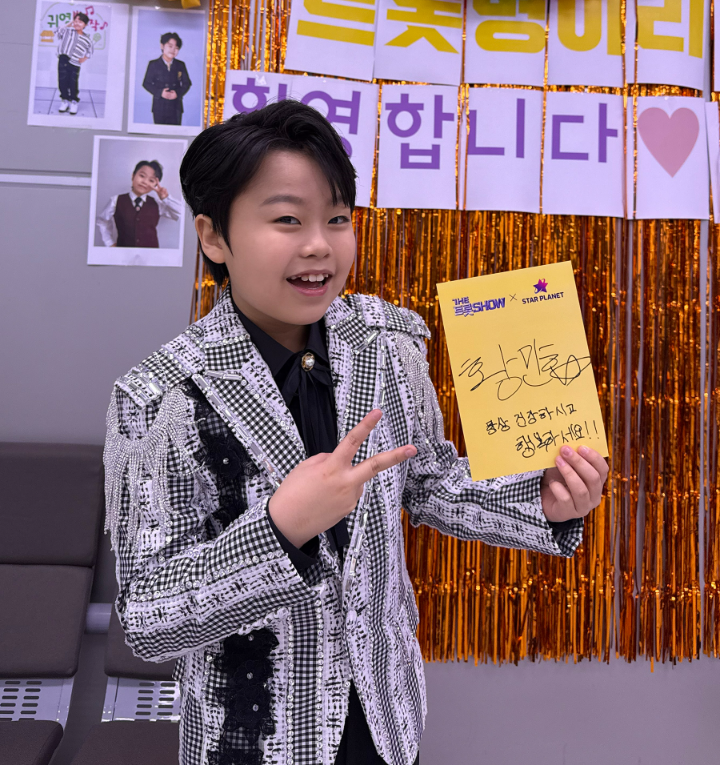 귀염뽀짝
트롯병아리
환영합니다
THE 트롯SHOW × STAR PLANET
황민호
항상 건강하시고
행복하세요!!